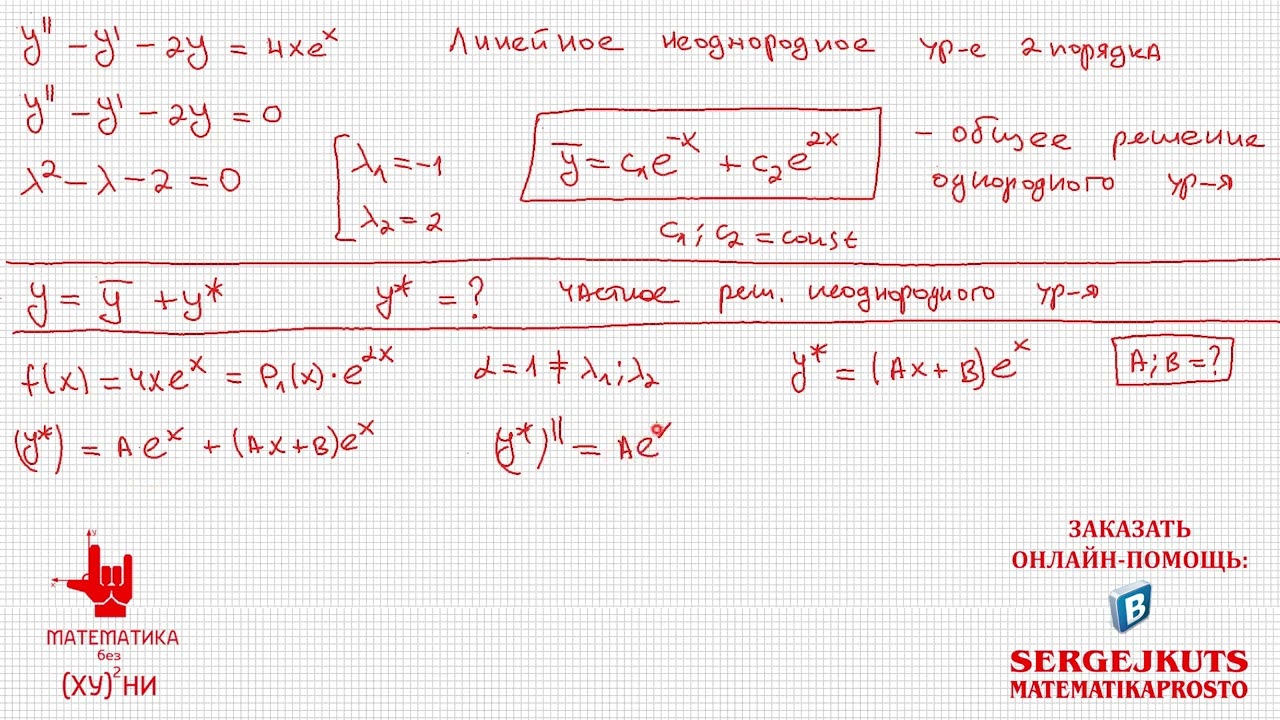 y'' - y' - 2y = 4xeˣ Линейное неоднородное ур-е 2 порядка
y'' - y' - 2y = 0
λ² - λ - 2 = 0
[ λ₁ = -1
λ₂ = 2
ȳ = c₁e⁻ˣ + c₂e²ˣ
- общее решение
однородного ур-я
c₁; c₂ = const
y = ȳ + y* y* = ? частное реш. неоднородного ур-я
f(x) = 4xeˣ = P₁(x)·e^αx α = 1 ≠ λ₁; λ₂ y* = (Ax + B)eˣ A; B = ?
(y*) = Aeˣ + (Ax+B)eˣ (y*)'' = Ae
y
x
МАТЕМАТИКА
без
(ХУ)²НИ
ЗАКАЗАТЬ
ОНЛАЙН-ПОМОЩЬ:
В
SERGEJKUTS
MATEMATIKAPROSTO